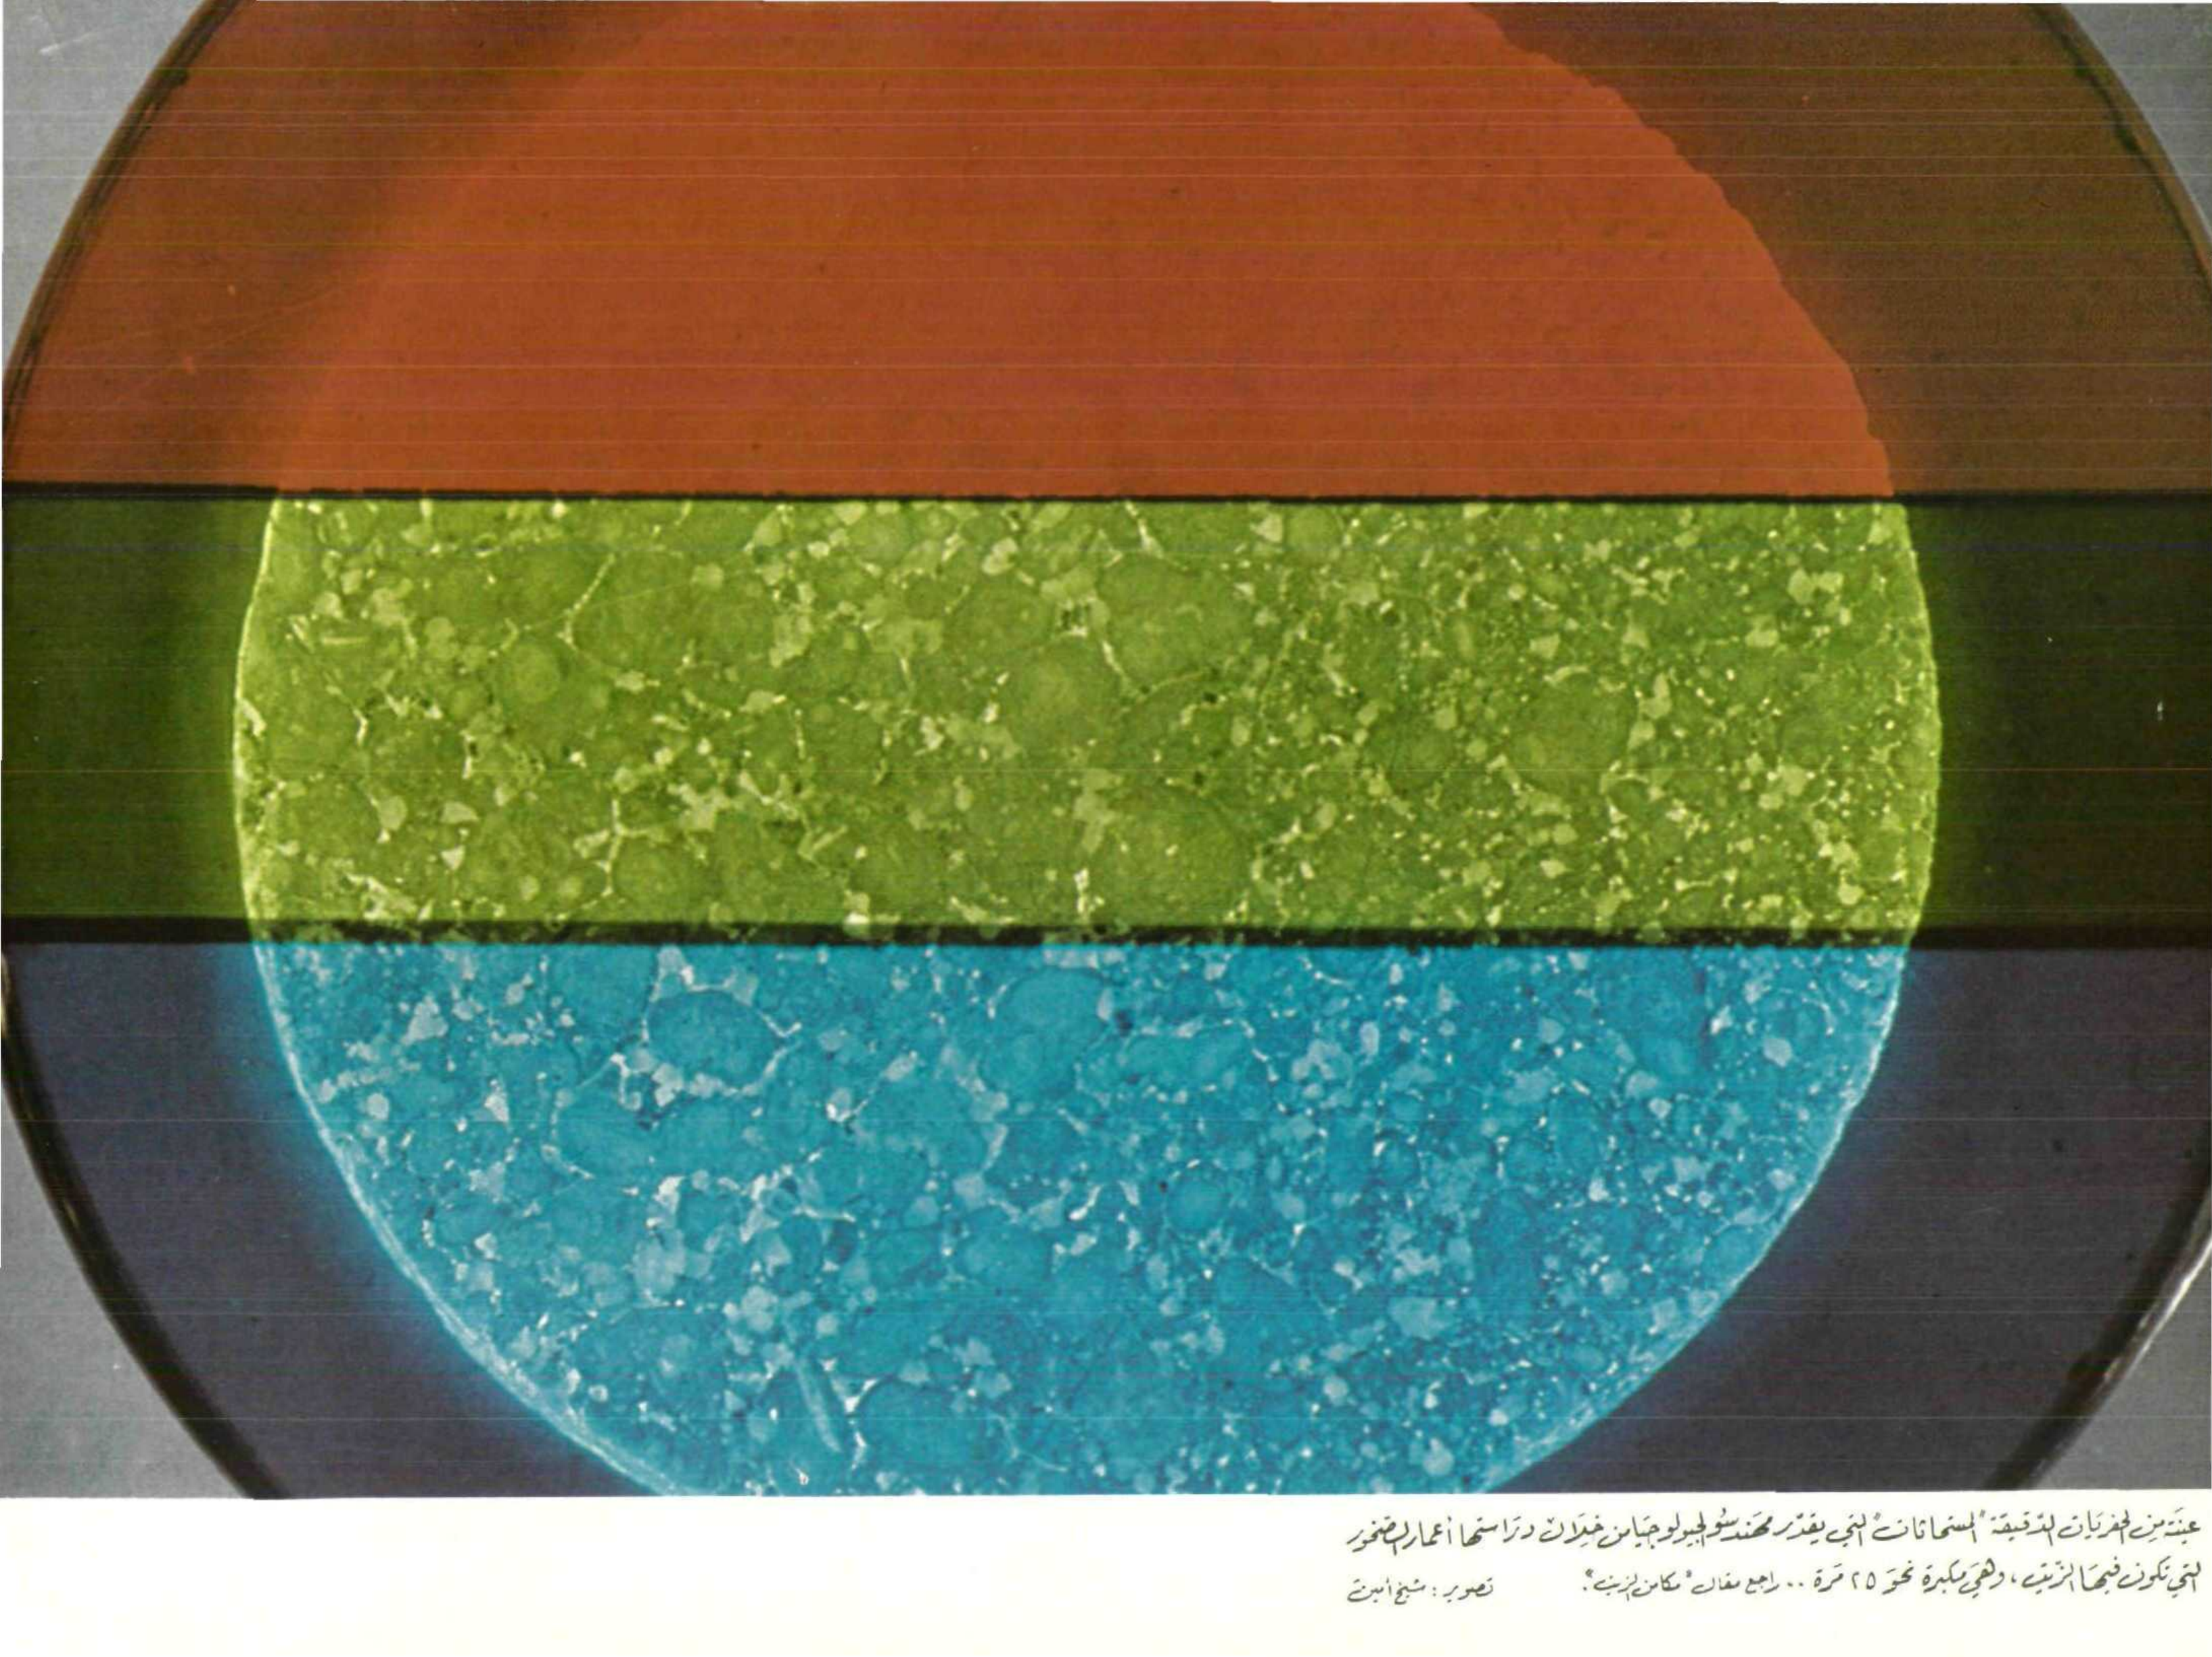 عينَة مِن الحفريَات الدّقيقَة "المستحاثات" التي يقدّر مهَندسُو الجيولوجيَا من خِلَال دِرَاستها أعمار الصّخور
التي تكون فيهَا الزّيت، وَهيَ مكبرة نحوَ ٢٥ مَرة .. راجع مقال "مكامن الزيت".
تصوير : شيخ أمين